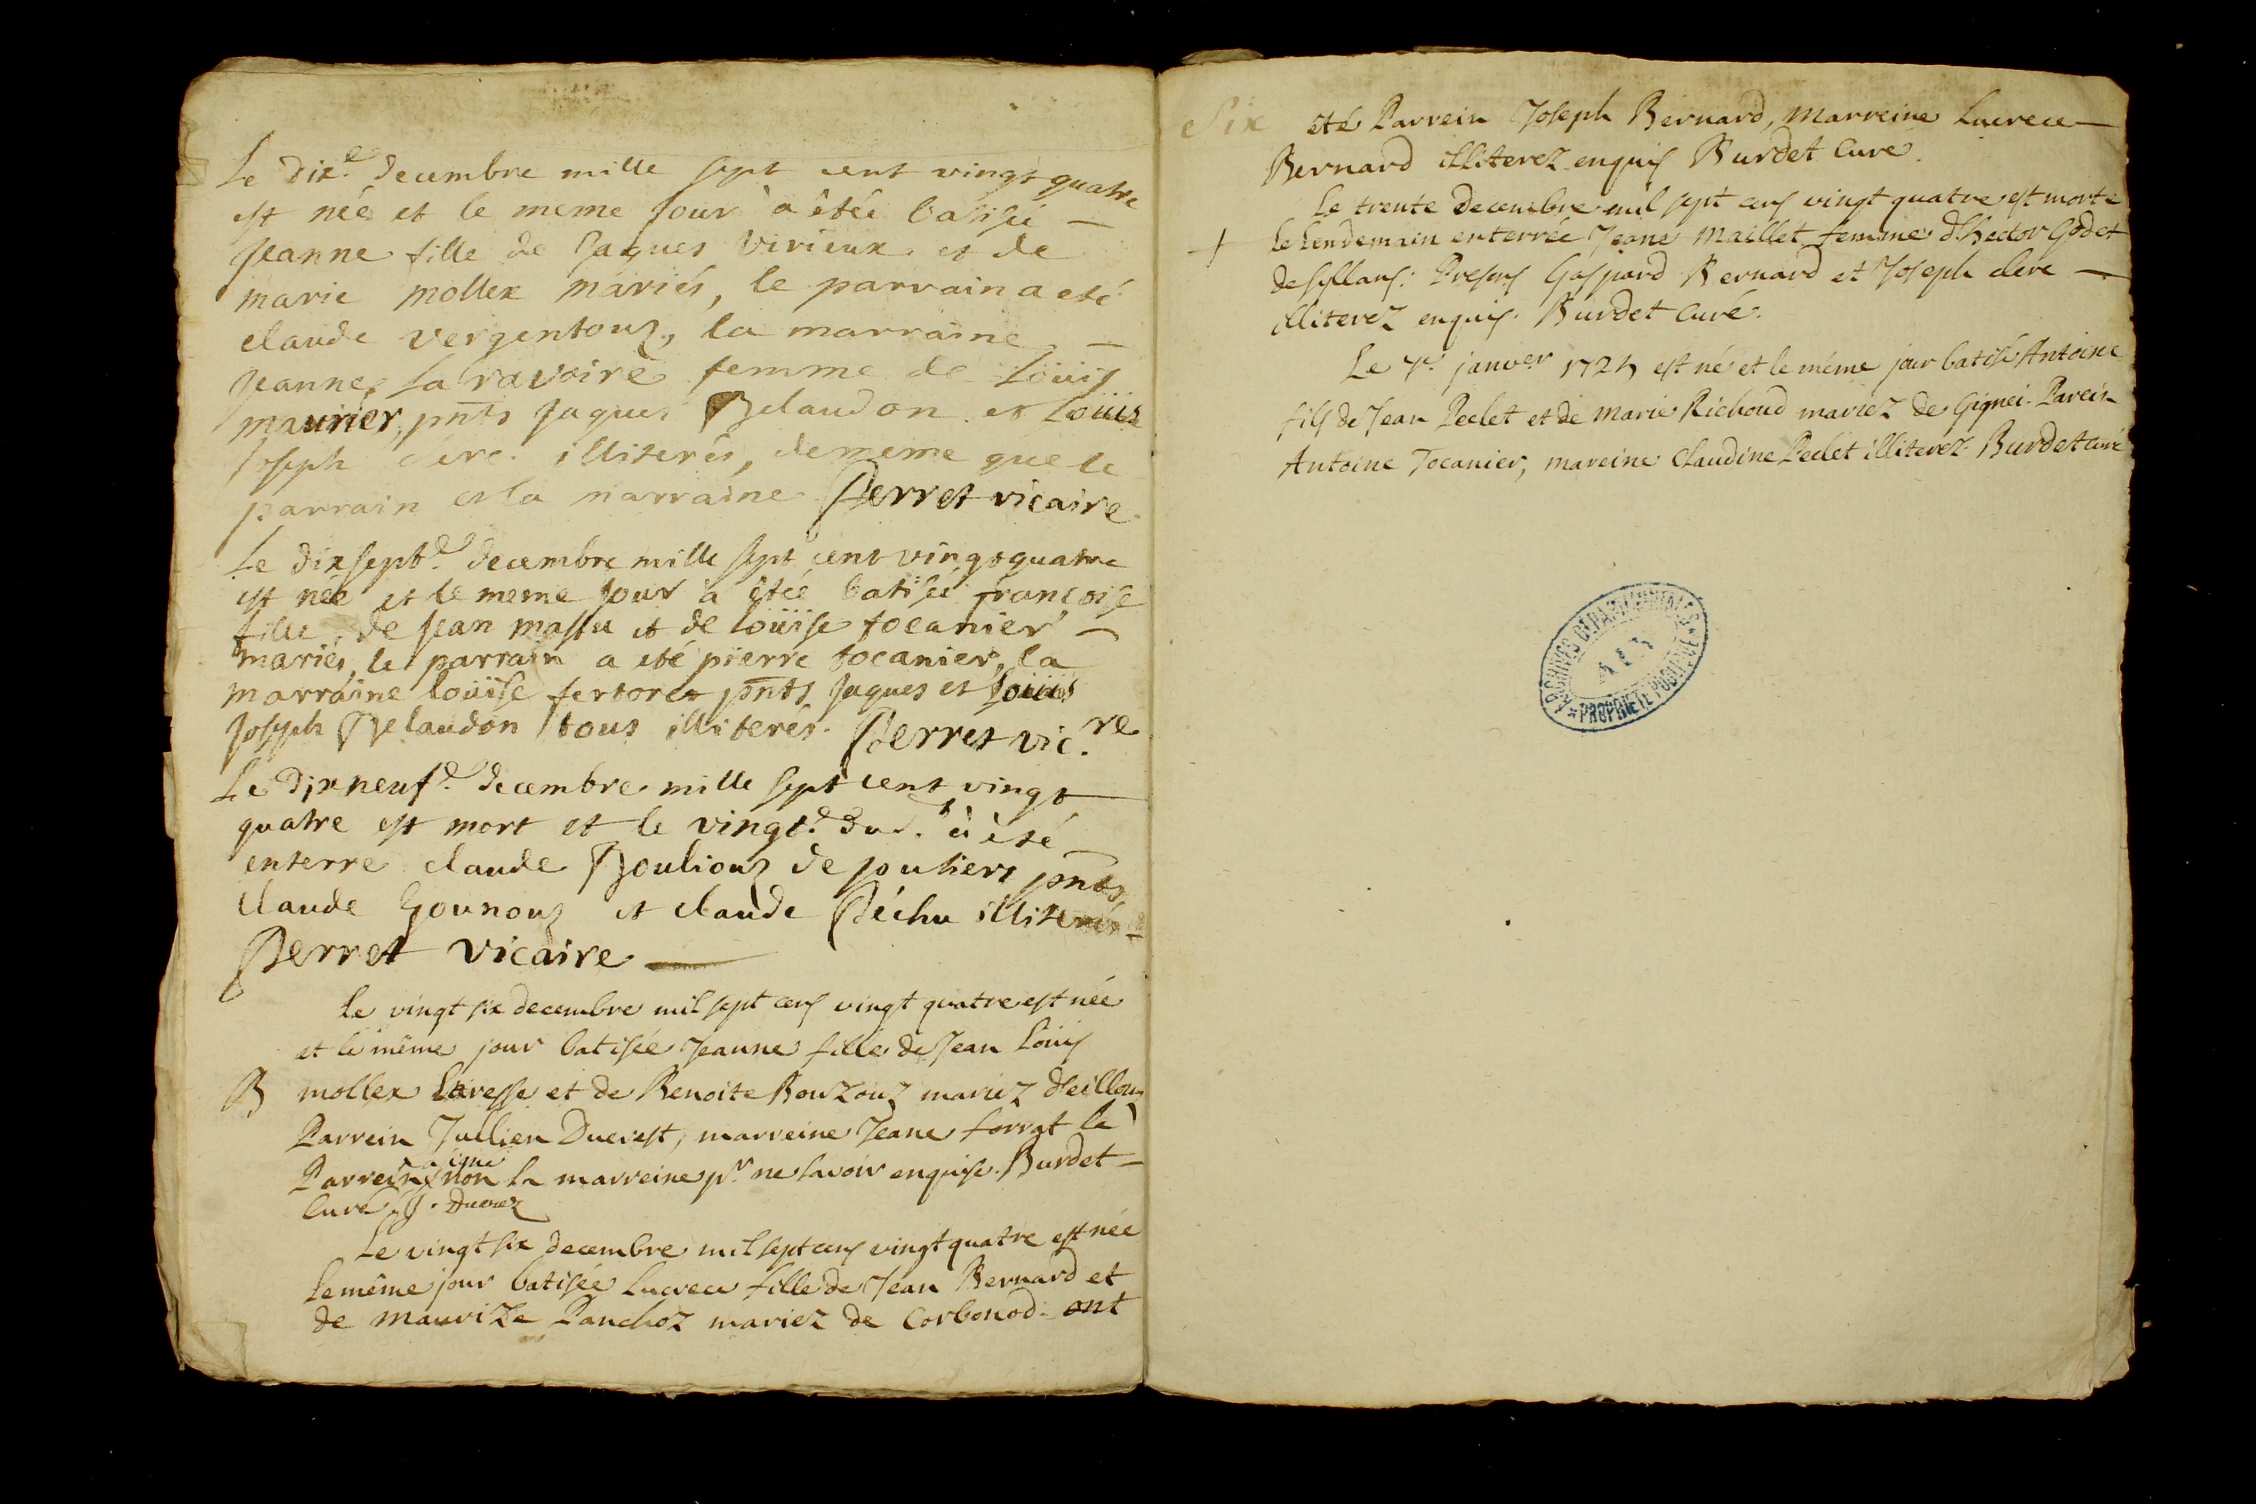 Le dix.e decembre mille sept cent vingt quatre
est née et le meme jour à étée batisée —
jeanne fille de jaques virieux et de
marie mollex mariés, le parrain a eté
claude vergentouz, la marraine —
jeanne, la ravoire femme de loüis
maurier, pnts jaques Belaudon et loüis
joseph clerc illiterés, de meme que le
parrain et la marraine Perret vicaire.
Le dix sept.e decembre mille sept cent vingt quatre
est née et le meme jour à étée batisée françoise
fille de jean massu et de loüise tocanier —
mariés, le parrain a eté pierre tocanier, la
marraine loüise fertoret pnts jaques et loüis
joseph Belaudon tous illiterés. Perret vic.re
Le dix neuf.e decembre mille sept cent vingt
quatre est mort et le vingt.e dud.t à été
enterre claude Bouliouz de puthiers pnts,
claude Gounouz et claude Péchu illiterés —
Perret vicaire —
Le vingt six decembre mil sept cens vingt quatre est née
et le même jour batisée Jeanne fille de Jean Loüis
B mollex laresse et de Benoite Bouzouz mariez d'eillouz
Parrein Jullien Ducrest, marreine Jeane forrat le
Parrein a signé non la marreine pr. ne savoir enquise. Burdet —
Curé J. Ducrez
Le vingt six decembre mil sept cens vingt quatre est née
le même jour batisée Lucrece fille de Jean Bernard et
de maurize Panchoz mariez de Corbonod. ont
Six eté Parrein Joseph Bernard, marreine Lucrece —
Bernard illiterez enquis Burdet Curé.
Le trente decembre mil sept cens vingt quatre est morte
+ le lendemain enterrée Jeane maillet femme d'hector Godet
de sillans: Presens Gaspard Bernard et Joseph clerc —
illiterez enquis. Burdet Curé.
Le janver 1725 est né et le même jour batisé Antoine
fils de Jean Peclet et de marie Richoud mariez de Gignei. Parein
Antoine Tocanier, mareine Claudine Peclet illiterez. Burdet Curé
ARCHIVES DÉPARTEMENTALES
AIN
PROPRIÉTÉ PUBLIQUE